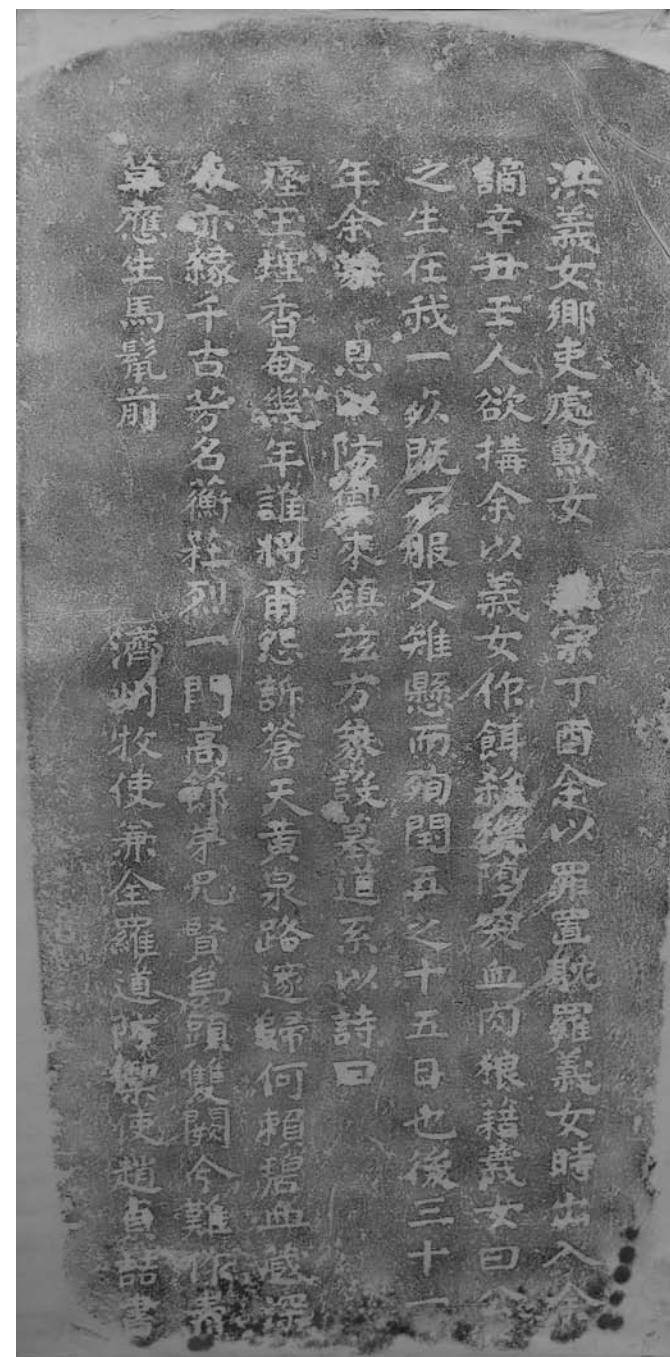 洪義女鄉吏處勲女　宗丁酉余以罪置耽羅義女時出入余
謫辛丑壬人欲搆余以義女作餌殺機闖發血肉狼藉義女曰公
之生在我一死既不服又雉懸而殉閏五之十五日也後三十一
年余蒙　恩以防禦來鎮茲方象設墓道系以詩曰
瘞玉埋香奄幾年誰將爾怨訴蒼天黃泉路邃歸何賴碧血藏深
死亦緣千古芳名蘅杜烈一門高節弟兄賢烏頭雙闕今難作靑
草應生馬鬣前　濟州牧使兼全羅道防禦使趙貞喆書